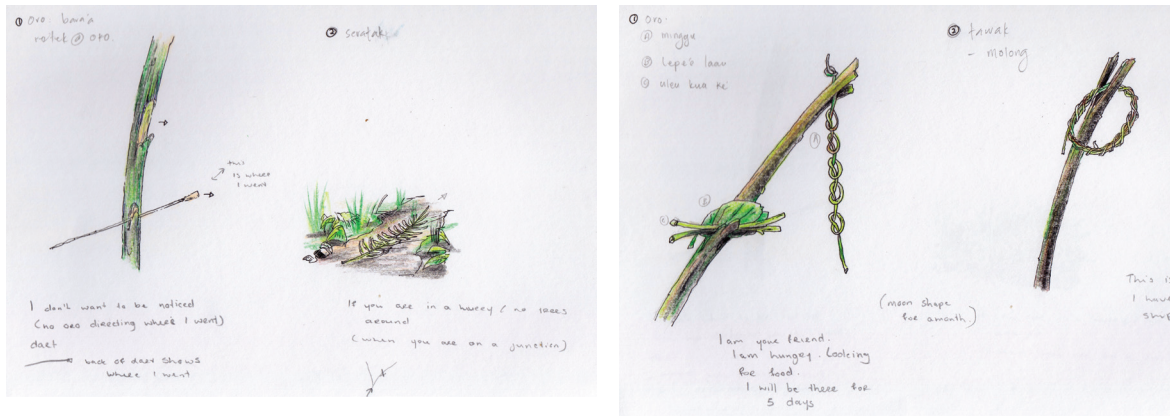 ① Oro bara'a
rotek @ oro.
② seratak
this
is where
I went
I don't want to be noticed
(no oro directing where I went)
dart
back of dart shows
where I went
If you are in a hurry (no trees
around
(when you are on a junction)
① Oro.
Ⓐ minggu
Ⓑ Lepe'o laau
Ⓒ uleu kua ke'
② tawak
- molong
A
B
C
I am your friend.
I am hungry. Looking
for food.
I will be there for
5 days
(moon shape
for a month.)
This is
I have